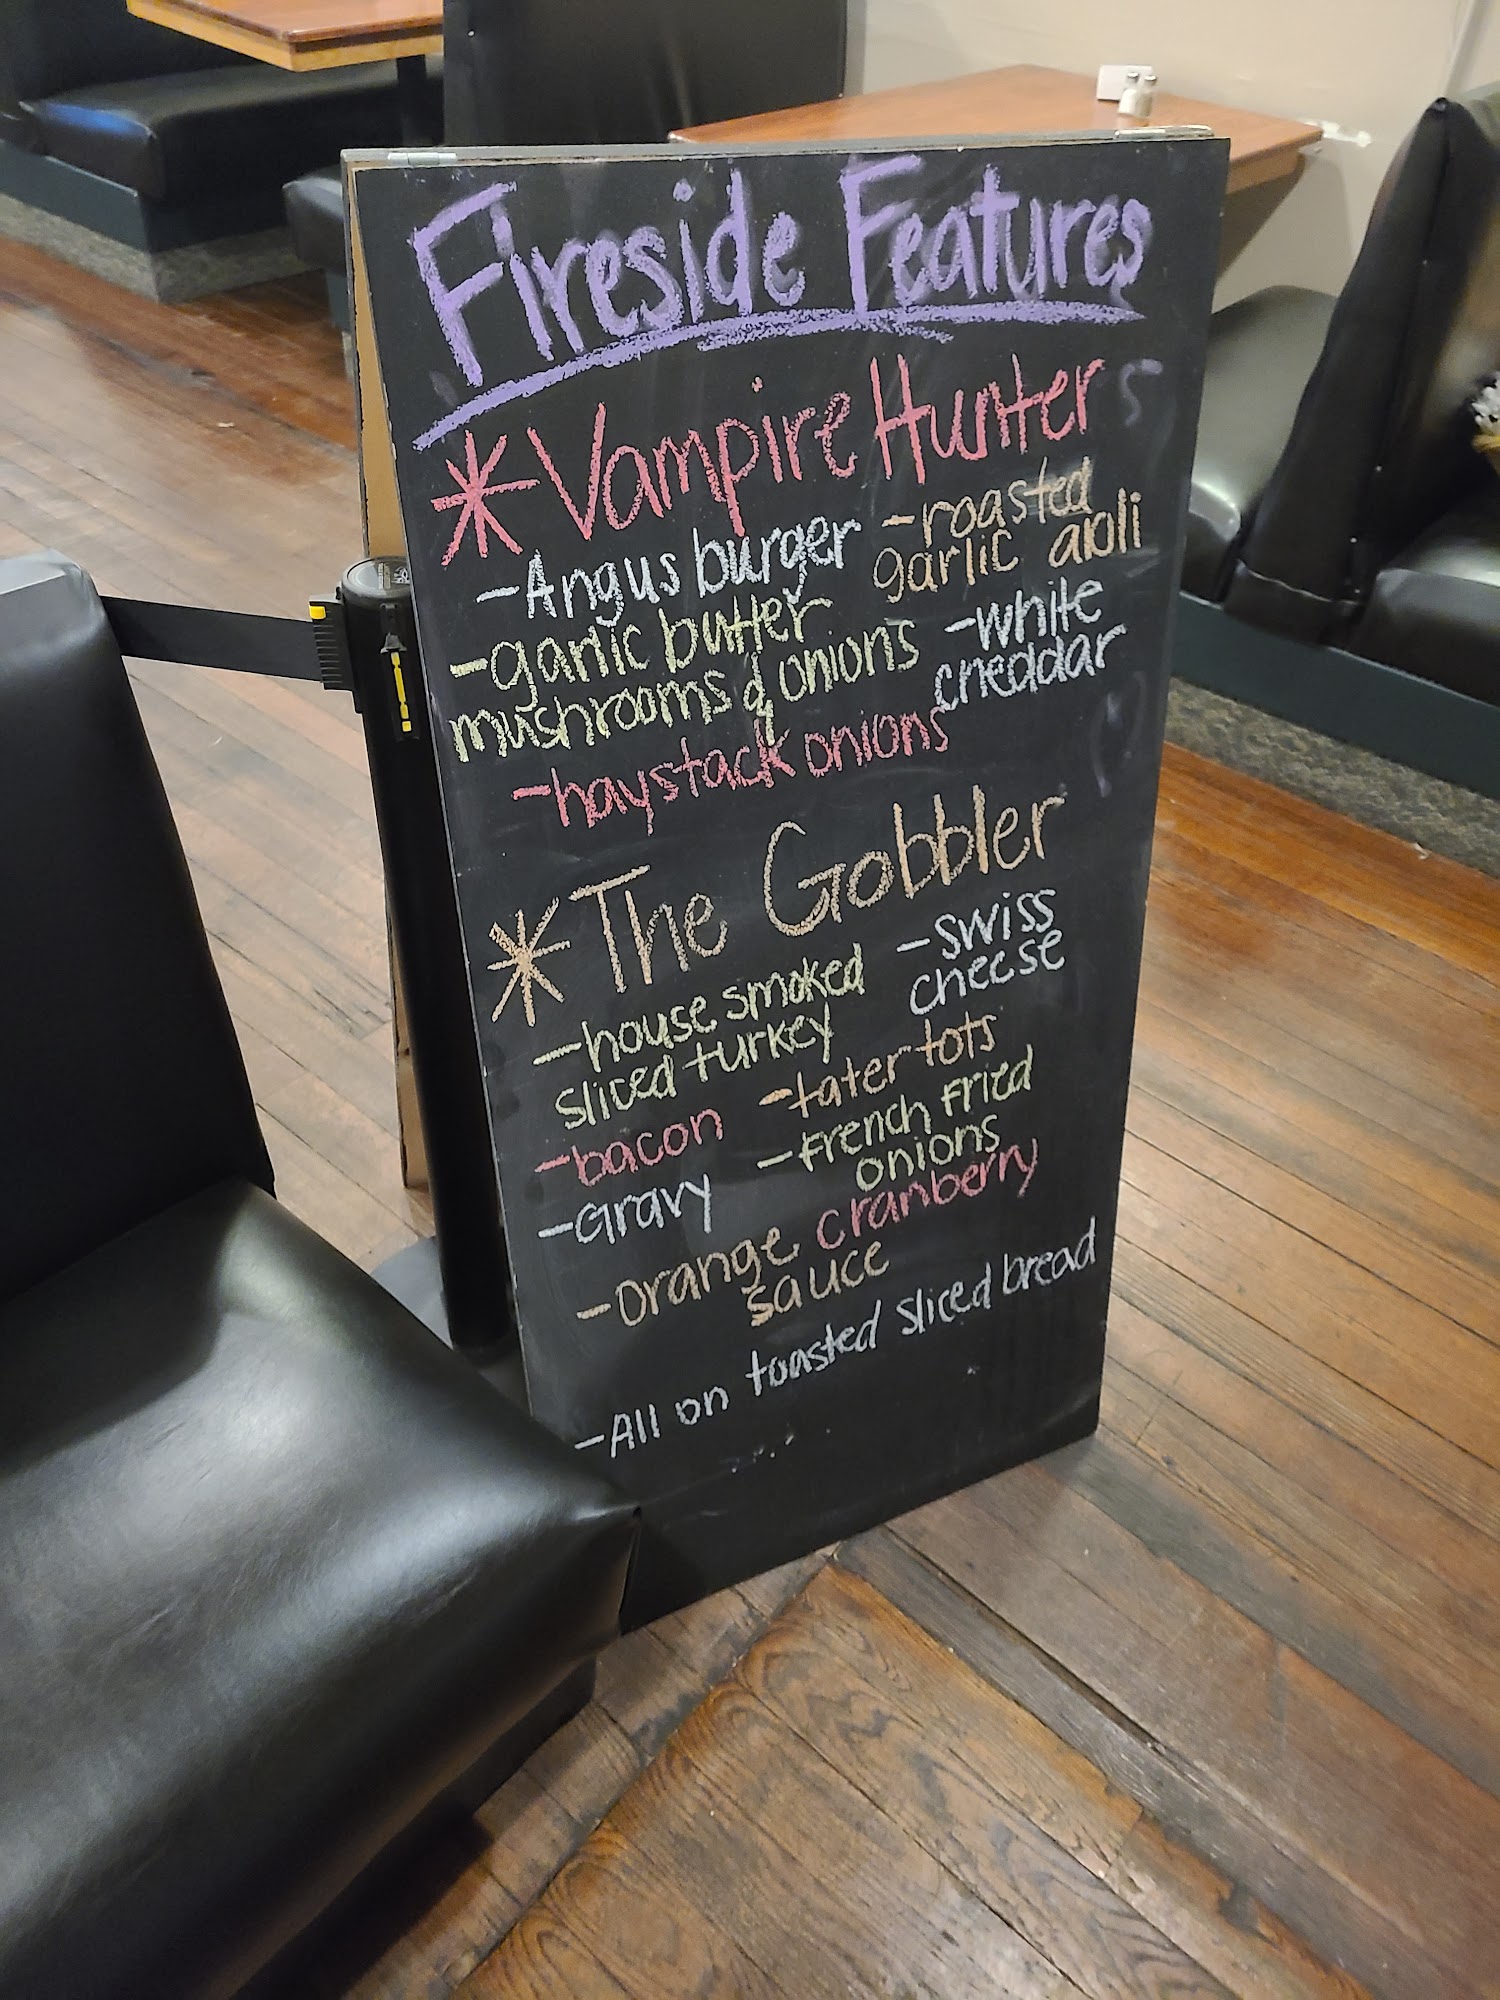 Fireside Features
* Vampire Hunter
-Angus burger
-garlic butter
mushrooms & onions
-haystack onions
-roasted
garlic aioli
-white
cheddar
* The Gobbler
-house smoked
sliced turkey
-bacon
-Gravy
-Swiss
cheese
-tater tots
-French Fried
onions
-Orange cranberry
sauce
-All on toasted sliced bread